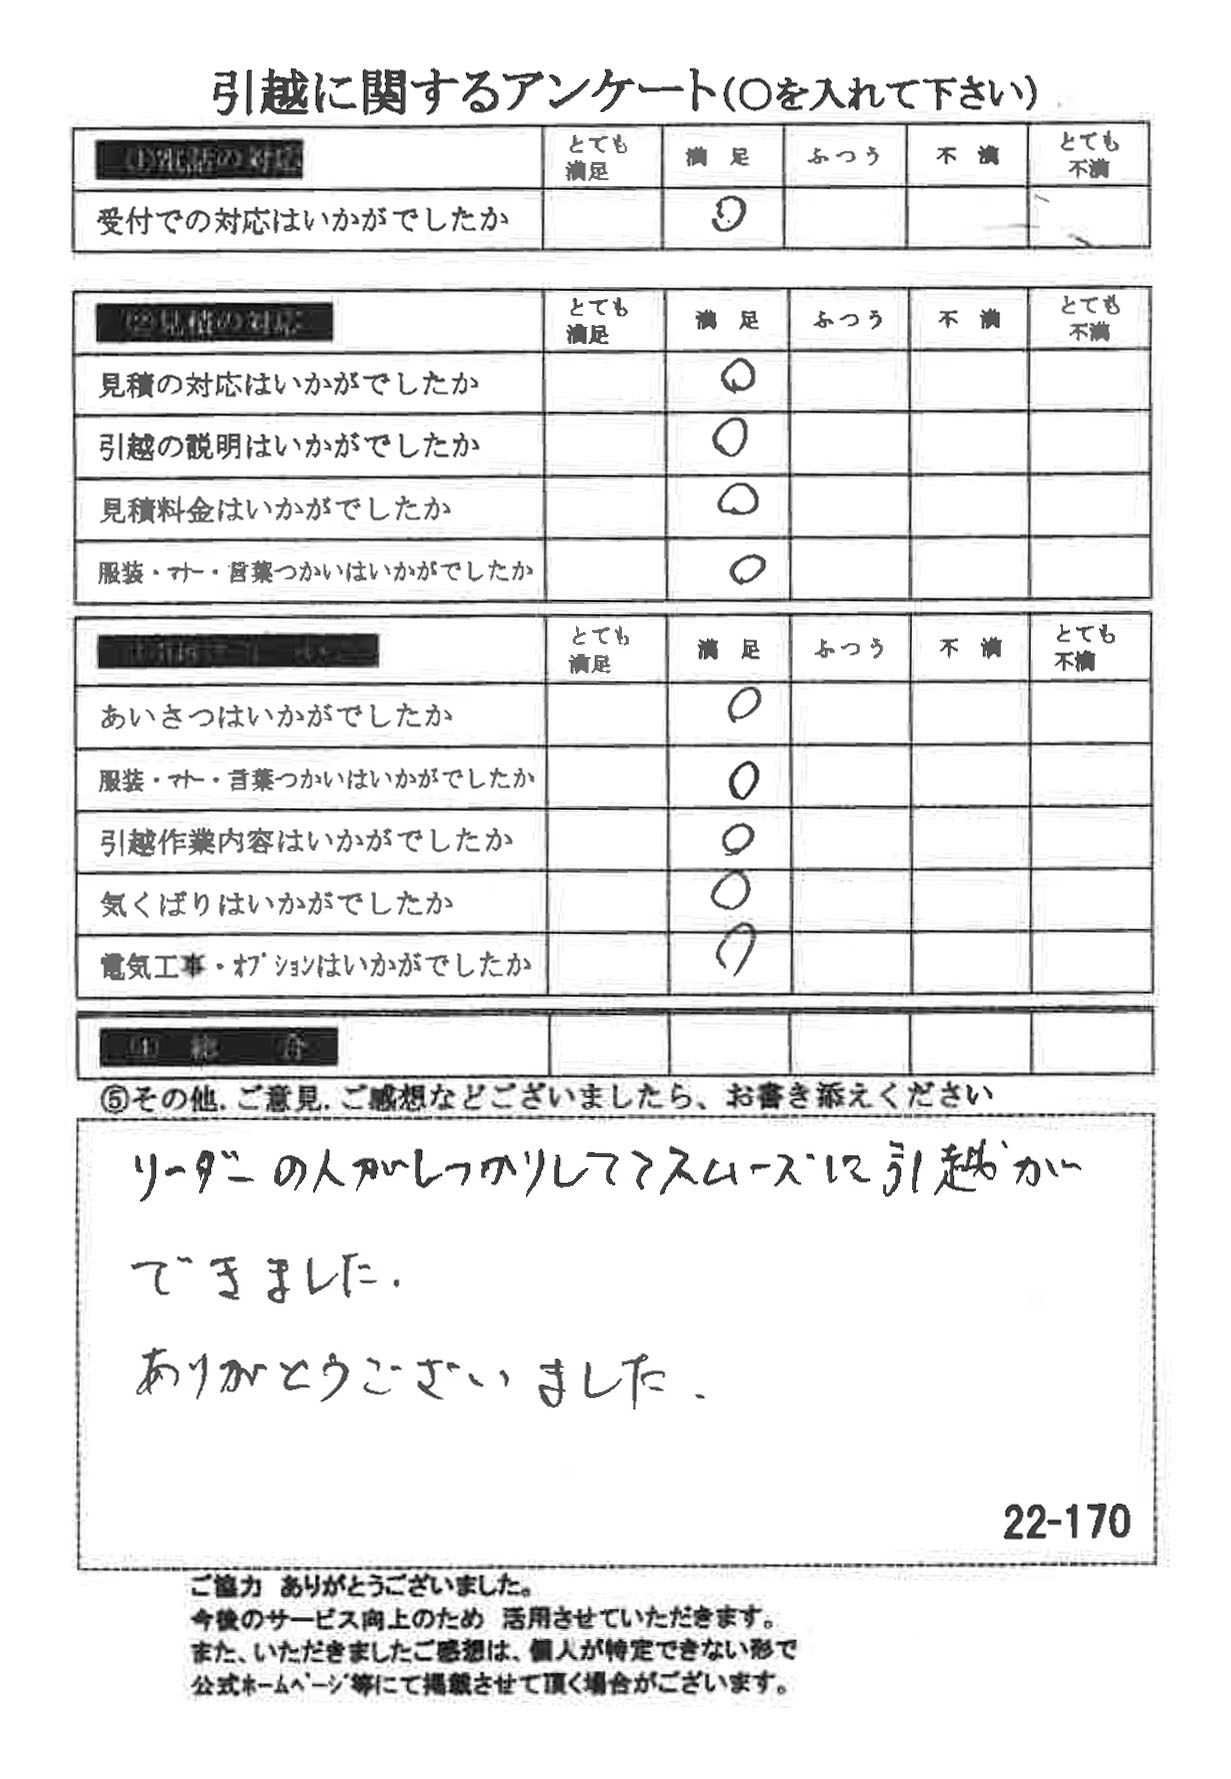 引越に関するアンケート(〇を入れて下さい)
①電話の対応 とても満足 満足 ふつう 不満 とても不満
受付での対応はいかがでしたか ○
②見積の対応 とても満足 満足 ふつう 不満 とても不満
見積の対応はいかがでしたか ○
引越の説明はいかがでしたか ○
見積料金はいかがでしたか ○
服装・マナー・言葉つかいはいかがでしたか ○
とても満足 満足 ふつう 不満 とても不満
あいさつはいかがでしたか ○
服装・マナー・言葉つかいはいかがでしたか ○
引越作業内容はいかがでしたか ○
気くばりはいかがでしたか ○
電気工事・オプションはいかがでしたか ○
④ 総 合
⑤その他.ご意見.ご感想などございましたら、お書き添えください
リーダーの人がしっかりしててスムーズに引越が
できました.
ありがとうございました.
22-170
ご協力 ありがとうございました。
今後のサービス向上のため 活用させていただきます。
また、いただきましたご感想は、個人が特定できない形で
公式ホームページ等にて掲載させて頂く場合がございます。